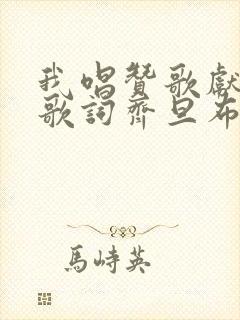 我唱贊歌獻
歌詞齊旦布
馬峙英